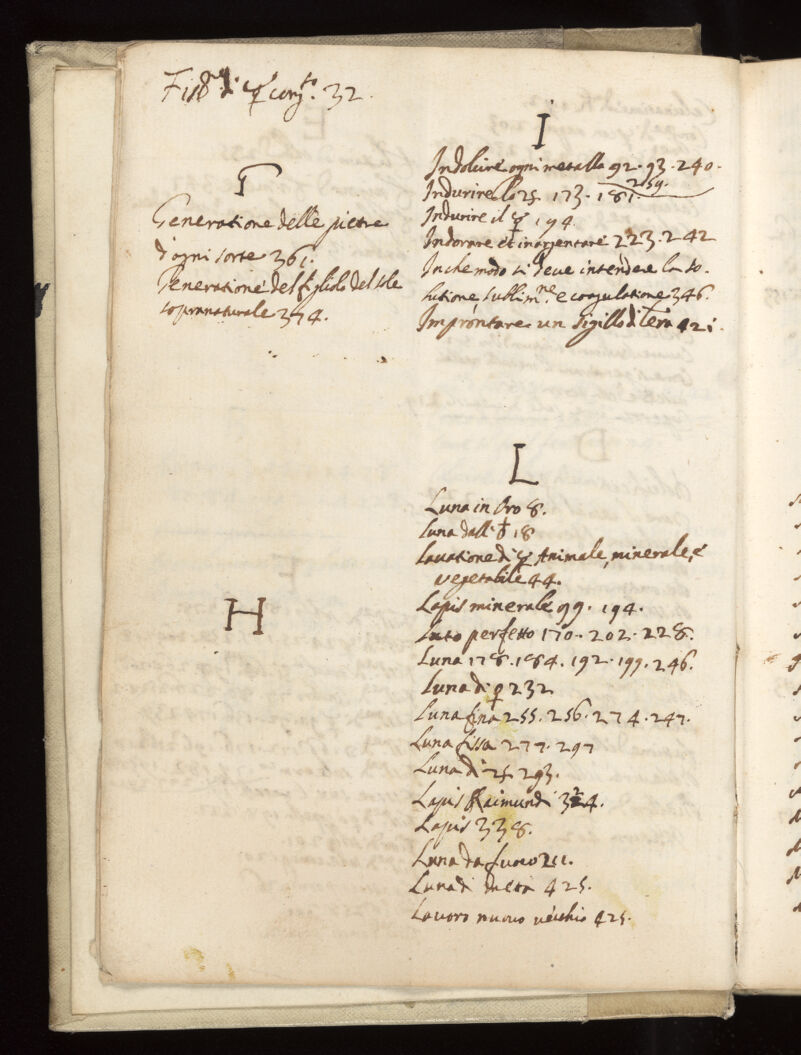 Fiss.ne di ☿ cong.to 32.
G
Generatione delle pietre
d'ogni sorte 361.
Generatione del figliolo del sole
sopranaturale 374.
H
I
Indolcire ogni metallo 92. 93. 240.
259.
Indurire lo ♃ 173. 181.
Indurire il ☿ 194.
Indorare et inargentare 223. 242
In che modo si deve intendere la so-
lutione sublim.ne e coagulatione 346.
Improntare un sigillo di terra 421.
L
Luna in Oro 8.
Luna dall' ♄ 18
Lavatione di ☿ Animale, minerale, e
vegetabile 44.
Lapis minerale 99. 194.
Luto perfetto 170. 202. 228.
Luna 178. 184. 192. 199. 246.
Luna di ♀ 232
Luna fina 255. 256. 274. 247.
Luna fissa 277. 297
Luna di ♃ 293.
Lapis Raimundi 324.
Lapis 338.
Luna da fuoco 211.
Luna di 425.
Lavoro nuovo vecchio 425.